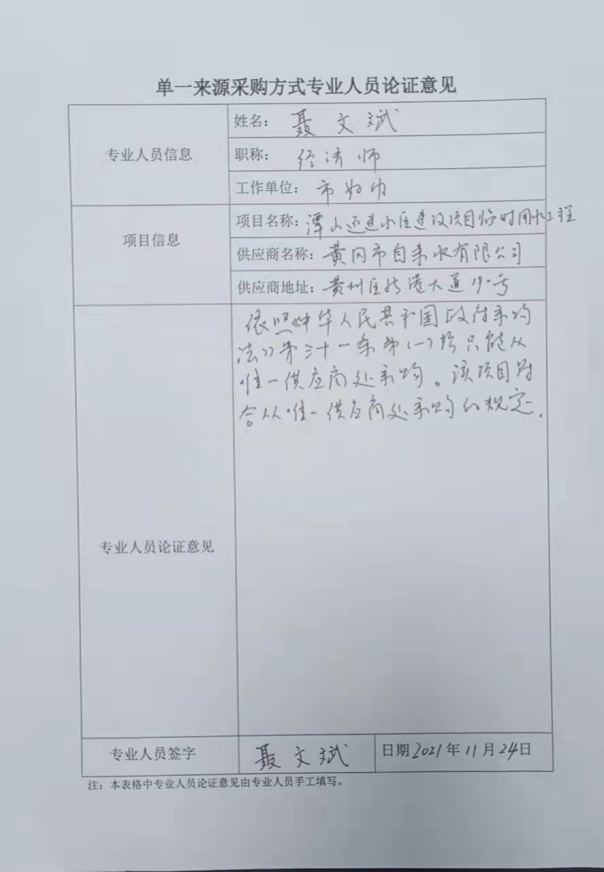 单一来源采购方式专业人员论证意见
专业人员信息
姓名: 聂文斌
职称: 经济师
工作单位: 市妇
项目信息
项目名称: 潭山还建小区建设项目临时用水工程
供应商名称: 黄冈市自来水有限公司
供应商地址: 黄州区新港大道19号
专业人员论证意见
依照《中华人民共和国政府采购
法》第三十一条第(一)项只能从
唯一供应商处采购。该项目符
合从唯一供应商处采购的规定.
专业人员签字
聂文斌
日期2021年11月24日
注: 本表格中专业人员论证意见由专业人员手工填写。